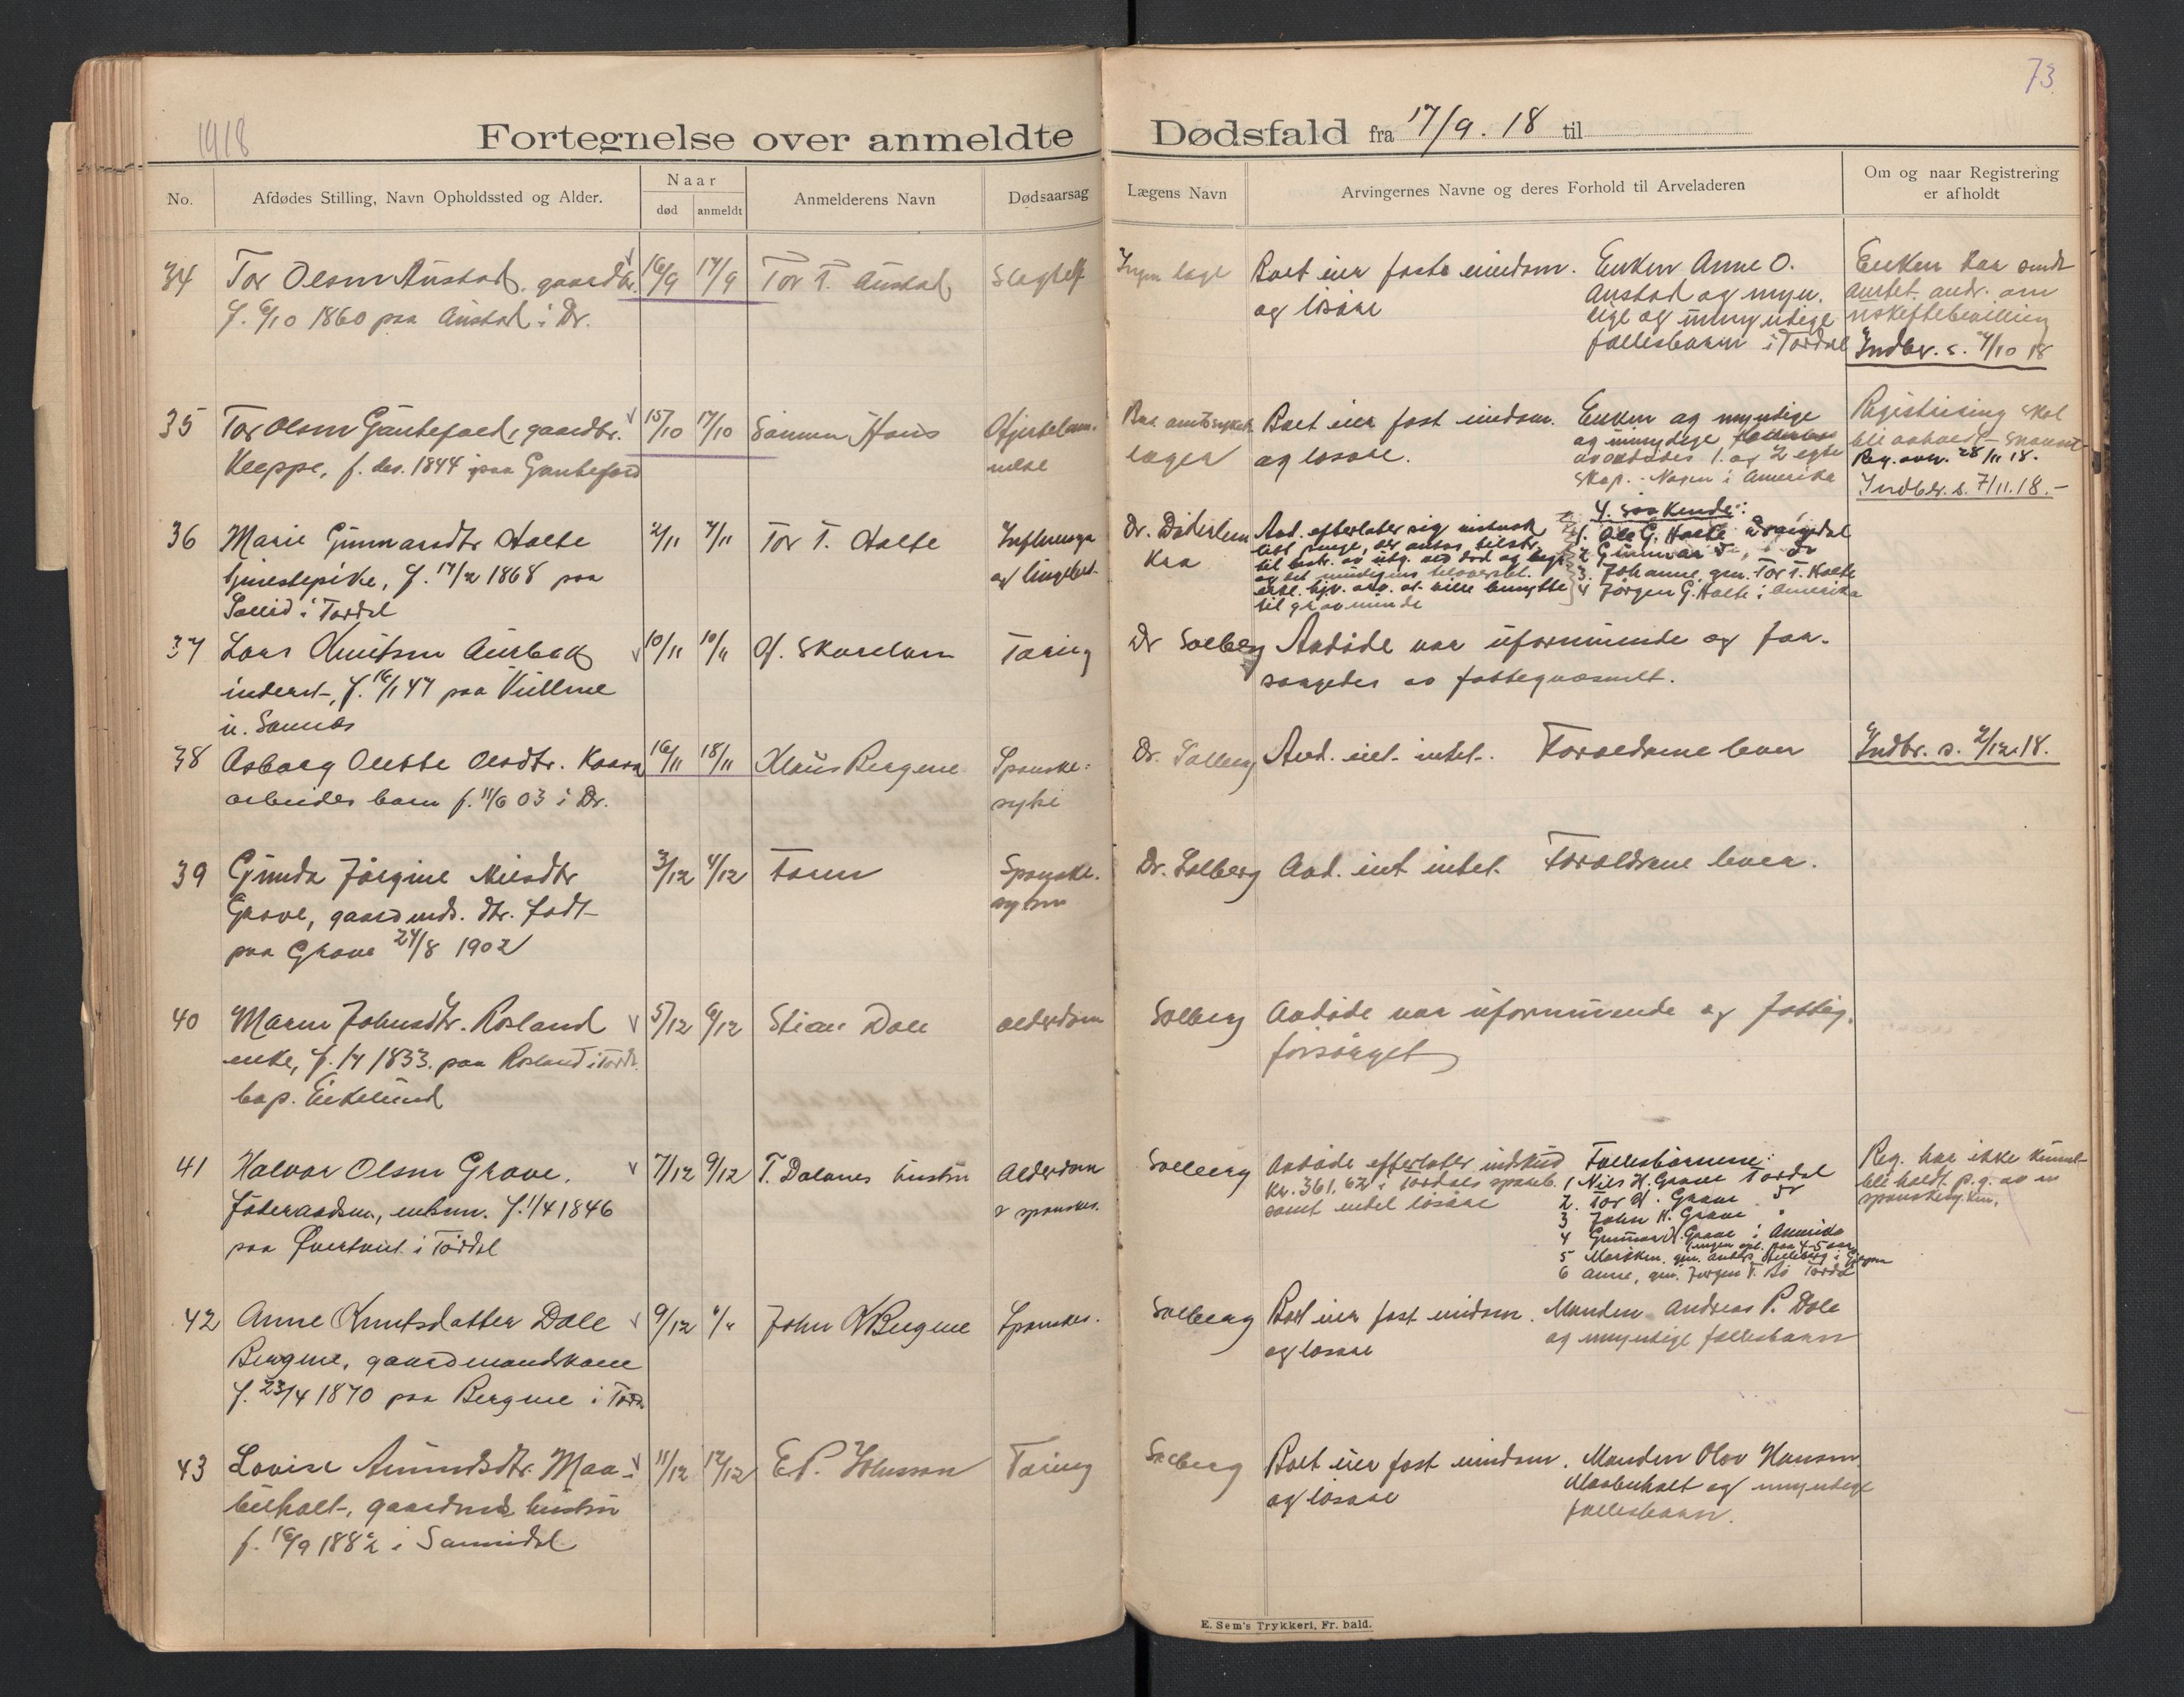 73
1918
Fortegnelse over anmeldte Dødsfald fra 17/9. 18 til
No.
Afdødes Stilling, Navn Opholdssted og Alder.
Naar
død
anmeldt
Anmelderens Navn
Dødsaarsag
Lægens Navn
Arvingernes Navne og deres Forhold til Arveladeren
Om og naar Registrering
er afholdt
34 Tor Olsen Austad, gaardbr.
f. 6/10 1860 paa Austad i Dr.
16/9 17/9 Tor T. Austad
Slagtilf.
Ingen læge
Boet eier faste eiendom.
og løsøre
Enken Anne O.
Austad og myn.
dige og umyndige
fællesbarn i Tørdal
Enken har sendt
amtet andr. om
uskiftebevilling
Indbr. s. 4/10 18
35 Tor Olsen Gautefald, gaardbr.
Kleppe, f. des. 1844 paa Gautefald
15/10 17/10
Hjertelam-
melse
lægen
Boet eier fast eiendom.
og løsøre.
Enken og myndige
og umyndige
avdødes 1. og 2 egte
skap. - Nogen i Amerika
Registrering skal
bli avholdt snarest
Reg. avh. 28/11 18.
Indbr. s. 7/11. 18. -
36 Marie Gunnarsdtr Holte
tjenestepike, f. 17/2 1868 paa
Sollid i Tørdal
2/11 7/11 Tor T. Holte
Influensa
og lungebet.
Dr. Dideriksen
Kra
Avd. efterlater sig
til gravminde
4. Søskende:
1. Ole G. Holte Drangedal
2 Gunnar Do, i do
3. Johanne, gm. Tor T. Holte
4 Jørgen G. Holte i Amerika
37 Lars Knutsen Aurbekk
inderst, f. 16/1 47 paa
u. Sannes
10/11 10/11 Of. Skarelven
Tæring
Dr Solberg
Avdøde var uformuende og for-
sørgedes av fattigvæsenet.
38 Asborg Olette Olsdtr. Kaasa
arbeider barn f. 11/6 03 i Dr.
16/11 18/11 Klaus Bergene
Spanske-
syke
Dr. Solberg
Avd. eiet intet. Forældrene lever
Indbr. s. 2/12. 18.
39 Gunda Jørgine Nilsdtr
Grave, gaardmds. dtr. født
paa Grave 24/8 1902
3/12 4/12 Faren
Spanske-
syken
Dr. Solberg
Avd. eiet intet. Forældrene lever.
40 Maren Johnsdtr. Rosland
enke, f. 1833. paa Rosland i Tørdl.
bop. Eikelund
5/12 6/12 Stian Dale
alderdom
Solberg
Avdøde var uformuende og fattig.
forsørget
41 Halvor Olsen Grave.
Føderaadsm., enkem. f. 1/4 1846
paa Øvertveit i Tørdal
7/12 9/12 T. Dalanes hustru
Alderdom
& spanskes.
Solberg
Avdøde efterlater indskud
Kr. 361,62 i Tørdals spareb.
samt endel løsøre
Fællesbarnene:
1 Nils H. Grave Tørdal
2. Tor H. Grave do
3 John H. Grave "
4 Gunnar H. Grave i Amerika
5
6 Anne, gm. Jørgen T. Bø Tørdal
Reg. har ikke kunnet
bli holdt p. g. av en
spanskesyken.
42 Anne Knutsdatter Dale
Bergene, gaardmandskone
f. 23/4 1870 paa Bergene i Tørd.
9/12 "/" John K Bergene
Spanskes.
Solberg
Boet eier fast eiendom.
og løsøre
Manden Andreas P. Dale
og umyndige fællesbarn
43 Lovise Amundsdtr. Maa-
beholt, gaardmds hustru
f. 16/9 1882 i Sannidal
11/12 12/12 E P. Johnsson
Tæring
Solberg
Boet eier fast eiendom.
og løsøre
Manden Olav Hansen
Maabeholt og umyndige
fællesbarn.
E. Sem's Trykkeri, Fr. hald.